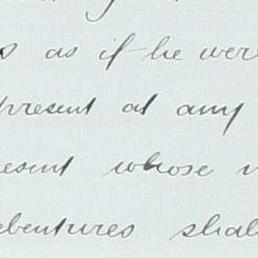 as if he were
present at any
present whose
debentures shall